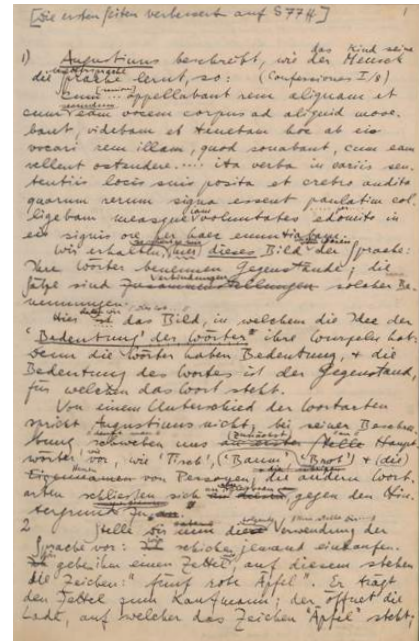 [Die ersten Seiten verbessert auf S 77 ff]
1
das Kind seine
1) Augustinus beschreibt, wie der Mensch
die Sprache lernt, so: (Confessiones I/8)
cum appellabant rem aliquam et
cum eam vocem corpus ad aliquid move-
bant, videbam et tenebam hoc ab eis
vocari rem illam, quod sonabant, cum eam
vellent ostendere.... ita verba in variis sen-
tentiis locis suis posita et crebro audita
quarum rerum signa essent paulatim col-
ligebam measque voluntates edomito in
eis signis ore per haec enuntiabam.
Wir erhalten (hier) dieses Bild der Sprache:
Ihre Wörter benennen Gegenstände; die
Verbindungen
Sätze sind Zusammenstellungen solcher Be-
nennungen.
Hier ist das Bild, in welchem die Idee der
'Bedeutung' des Wortes ihre Wurzeln hat.
Denn die Wörter haben Bedeutung, & die
Bedeutung des Wortes ist der Gegenstand,
für welchen das Wort steht.
Von einem Unterschied der Wortarten
spricht Augustinus nicht, bei seiner Beschrei-
zunächst
bung schweben uns an erster Stelle Haupt-
wörter vor, wie 'Tisch', ('Baum') 'Brot' & (die)
Eigennamen von Personen, die andern Wort-
arten schliessen sich gegen den Hin-
tergrund zu an.
2 Stelle Dir nun diese Verwendung der
Sprache vor: Ich schicke jemand einkaufen.
Ich gebe ihm einen Zettel, auf diesem stehen
die Zeichen: "fünf rote Äpfel". Er trägt
den Zettel zum Kaufmann; der öffnet die
Lade, auf welcher das Zeichen "Äpfel" steht,